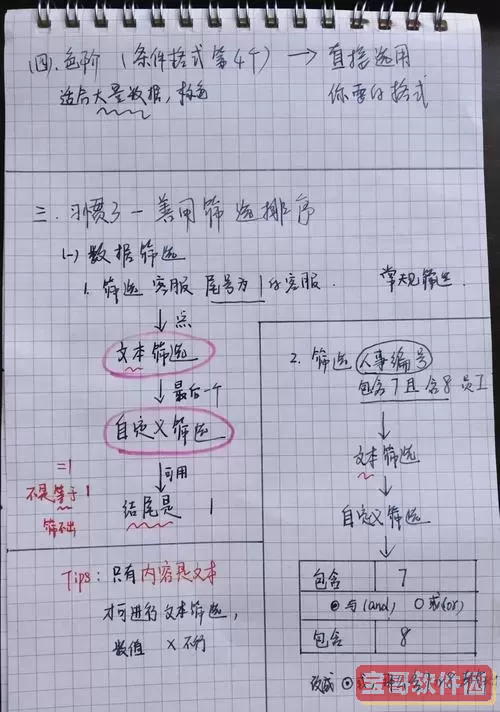 (四).色阶 (条件格式第4个) → 直接选用
适合大量数据,标色 你要的格式
三.习惯3-善用筛选排序
(一) 数据筛选
1. 筛选 客服 尾号为1的客服. 常规筛选.
↓点
文本筛选
↓最后一个
自定义筛选
↓可用
结尾是 1
=1
不是等于1
筛不出
Tips: 只有内容是文本
才可进行文本筛选,
数值 × 不行
2. 筛选 人事编号
包含7且含8员工
↓
文本筛选
↓
自定义筛选
↓
包含 7
⊙与(and) ○或(or)
包含 8
改成⊙或,
宝哥软件园